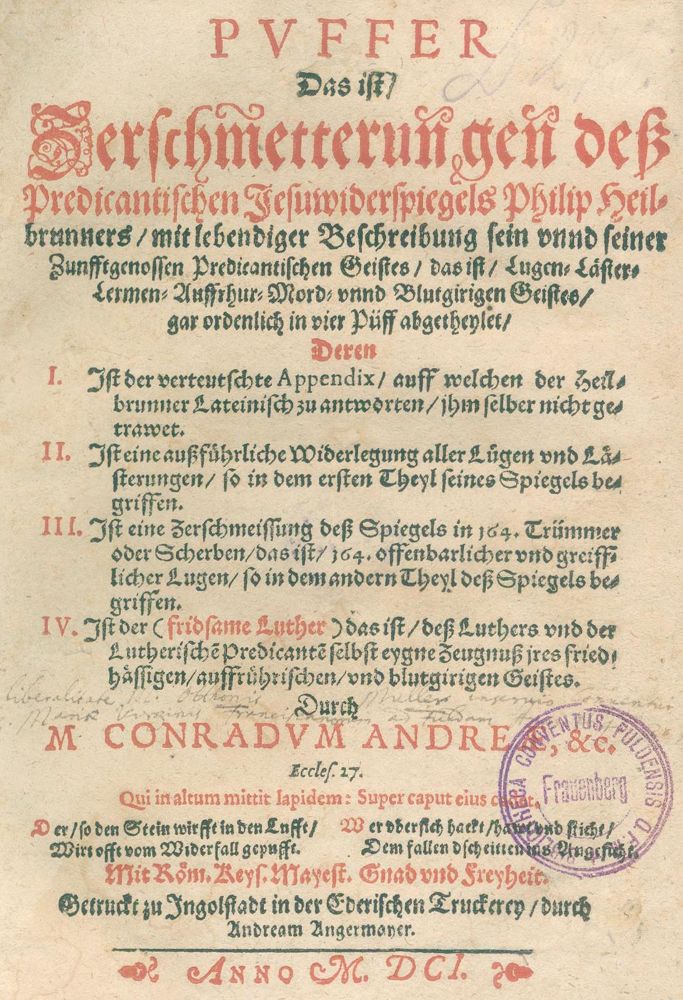 PVFFER
Das ist/
Zerschm̃etteruñgeñ deß
Predicantischen Jesuwiderspiegels Philip Heil-
brunners/ mit lebendiger Beschreibung sein vnnd seiner
Zunfftgenossen Predicantischen Geistes/ das ist/ Lugen- Läster-
Lermen- Auffrhur- Mord- vnnd Blutgirigen Geistes/
gar ordenlich in vier Püff abgetheylet/
Deren
I. Ist der verteutschte Appendix/ auff welchen der Heil-
brunner Lateinisch zu antworten/ jhm selber nicht ge-
trawet.
II. Ist eine außführliche Widerlegung aller Lügen vnd Lä-
sterungen/ so in dem ersten Theyl seines Spiegels be-
griffen.
III. Ist eine Zerschmeissung deß Spiegels in 164. Trümmer
oder Scherben/ das ist/ 164. offenbarlicher vnd greiff-
licher Lugen/ so in dem andern Theyl deß Spiegels be-
griffen.
IV. Ist der (fridsame Luther) das ist/ deß Luthers vnd der
Lutherischẽ Predicantẽ selbst eygne Zeugnuß jres fried-
hässigen/ auffrührischen/ vnd blutgirigen Geistes.
Durch
M CONRADVM ANDREÆ, &c.
Eccles. 27.
Qui in altum mittit lapidem: Super caput eius cadet.
Der/ so den Stein wirfft in den Lufft/
Wirt offt vom Widerfall gepufft.
Wer vbersich hackt/ hawt vnd sticht/
Dem fallen d scheitten ins Angesicht.
Mit Röm. Keys. Mayest. Gnad vnd Freyheit.
Getruckt zu Ingolstadt in der Ederischen Truckerey/ durch
Andream Angermayer.
ANNO M. DCI.
CONVENTUS FULDENSIS
Frauenberg